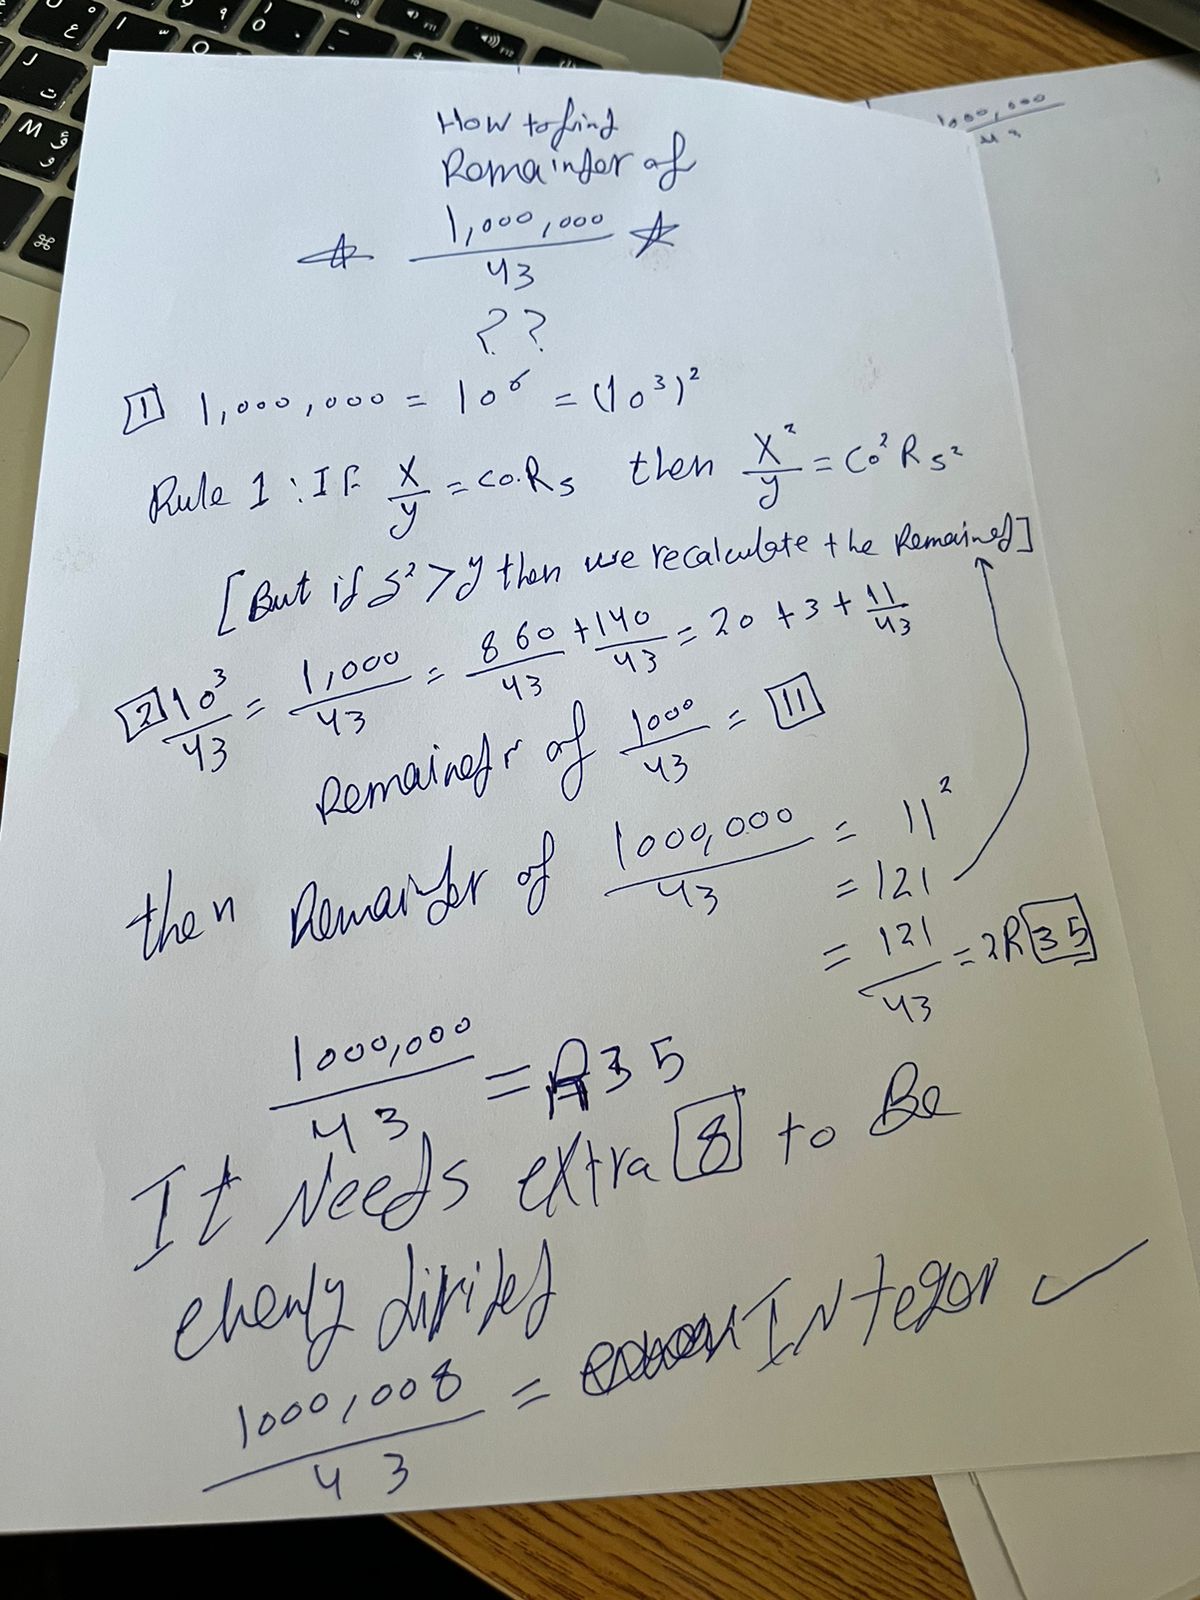 How to find
Remainder of
1,000,000
43
??
1 1,000,000 = 10⁶ = (10³)²
Rule 1 : If x/y = co.R₅ then x²/y = Co² R₅²
[But if 5² > y then we recalculate the Remained]
2 10³/43 = 1,000/43 = 860/43 + 140/43 = 20 + 3 + 11/43
Remainedr of 1000/43 = 11
then Remainder of 1000,000/43 = 11²
= 121
= 121/43 = 2R 35
1000,000/43 = R35
It Needs extra 8 to Be
evenly divided
1000,008/43 = INtegor ✓
1000,000
43